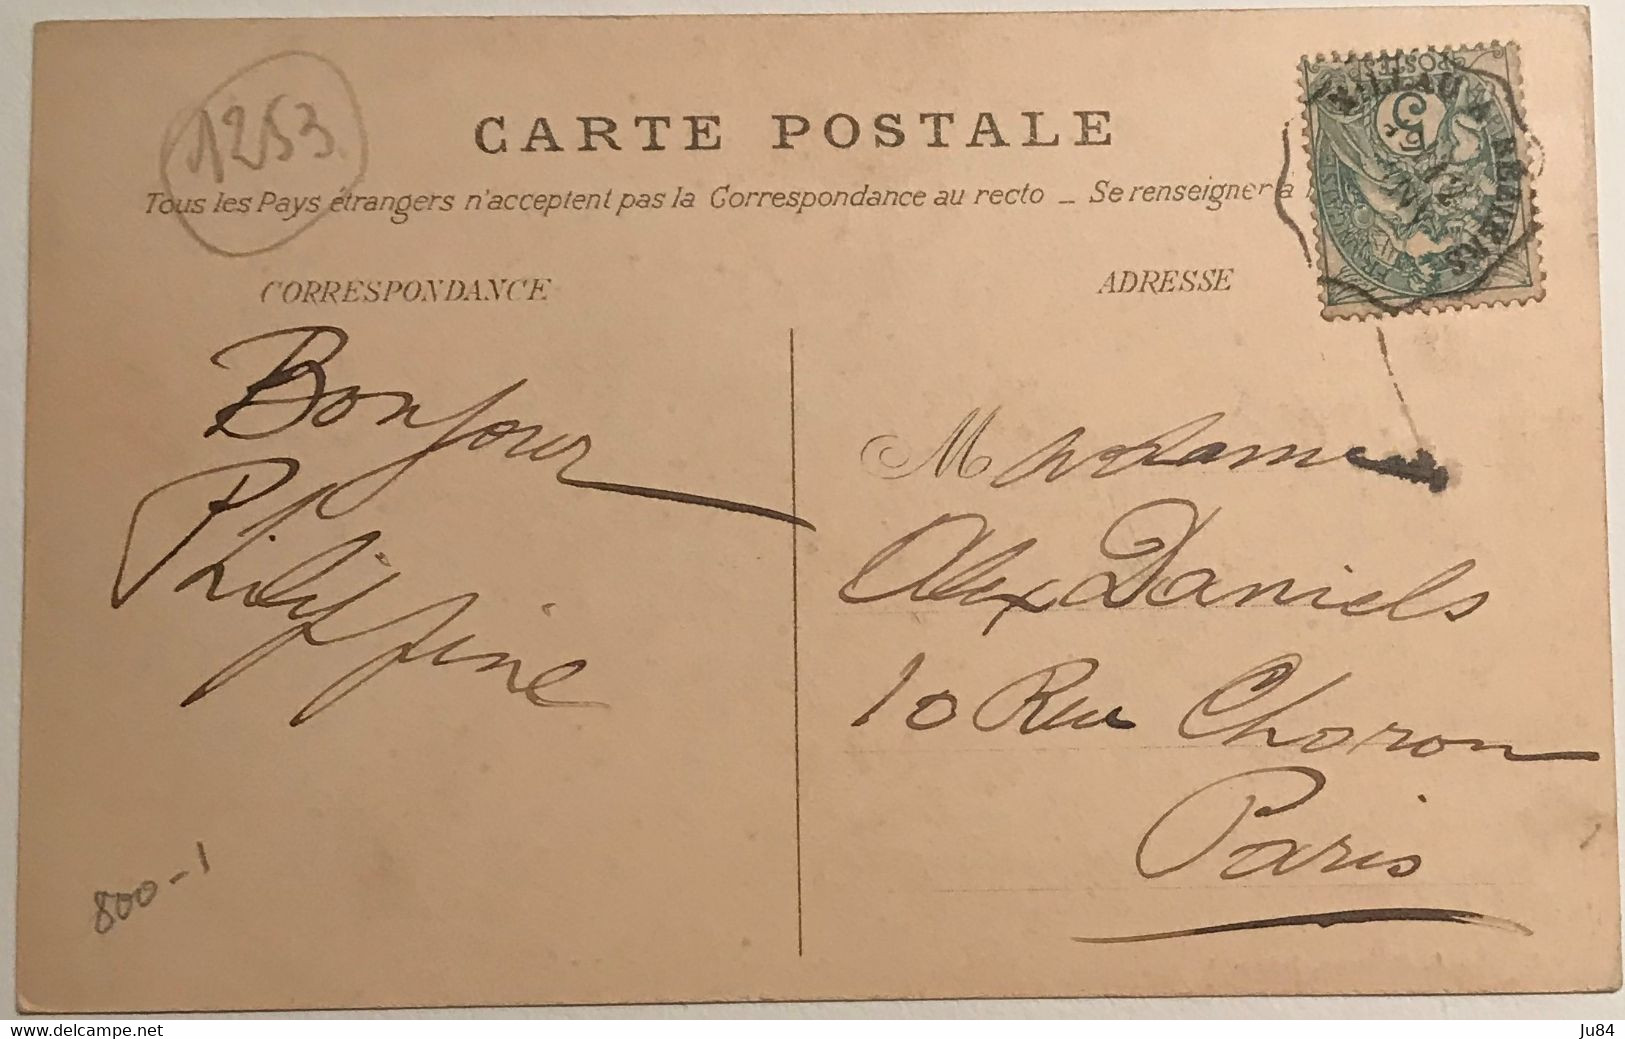 1253
CARTE POSTALE
Tous les Pays étrangers n'acceptent pas la Correspondance au recto _ Se renseigner à
CORRESPONDANCE
ADRESSE
Bonjour
Philippine
Madame
Alex Daniels
10 Rue Choron
Paris
800-1
POSTES
5
www.delcampe.net
Ju84